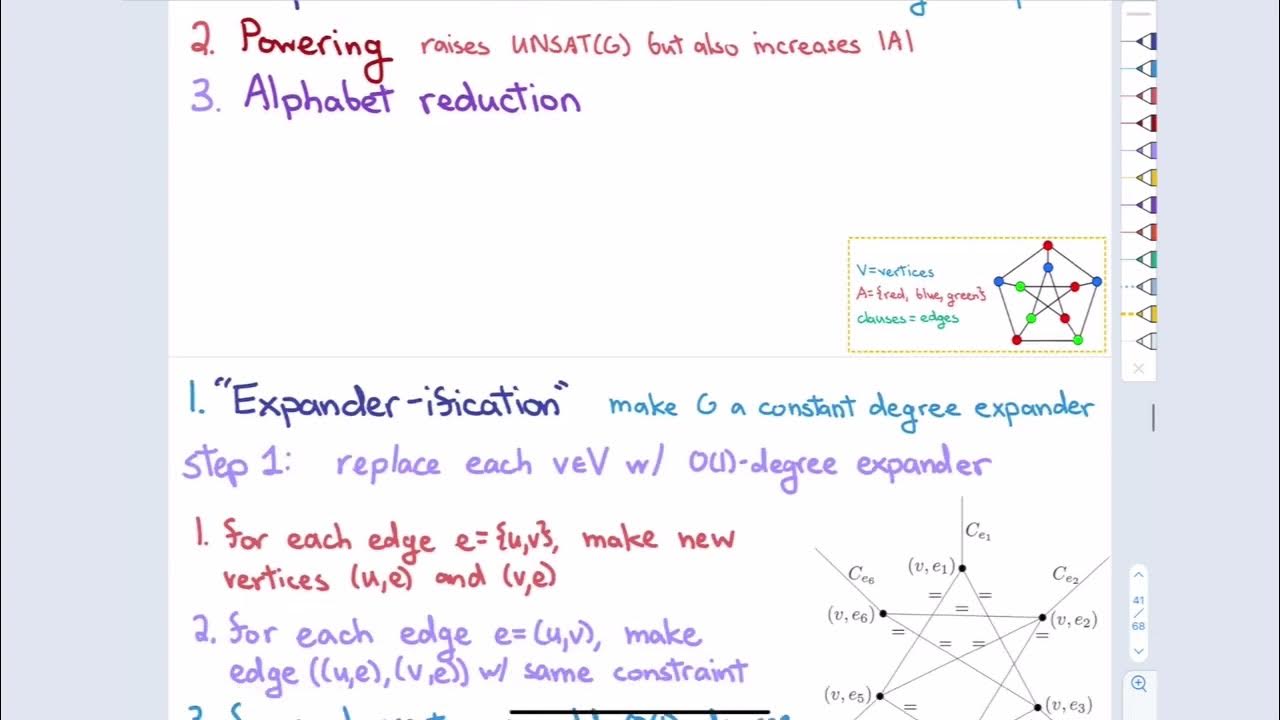 2. Powering raises UNSAT(G) but also increases |A|
3. Alphabet reduction
V=vertices
A={red, blue, green}
clauses = edges
1. "Expander-ification" make G a constant degree expander
step 1: replace each v∈V w/ O(1)-degree expander
1. for each edge e={u,v}, make new
vertices (u,e) and (v,e)
2. for each edge e=(u,v), make
edge ((u,e),(v,e)) w/ same constraint
C_{e_1}
(v, e_1)
C_{e_6}
C_{e_2}
= =
=
(v, e_6)
(v, e_2)
= = = =
(v, e_5)
(v, e_3)
=
41
68